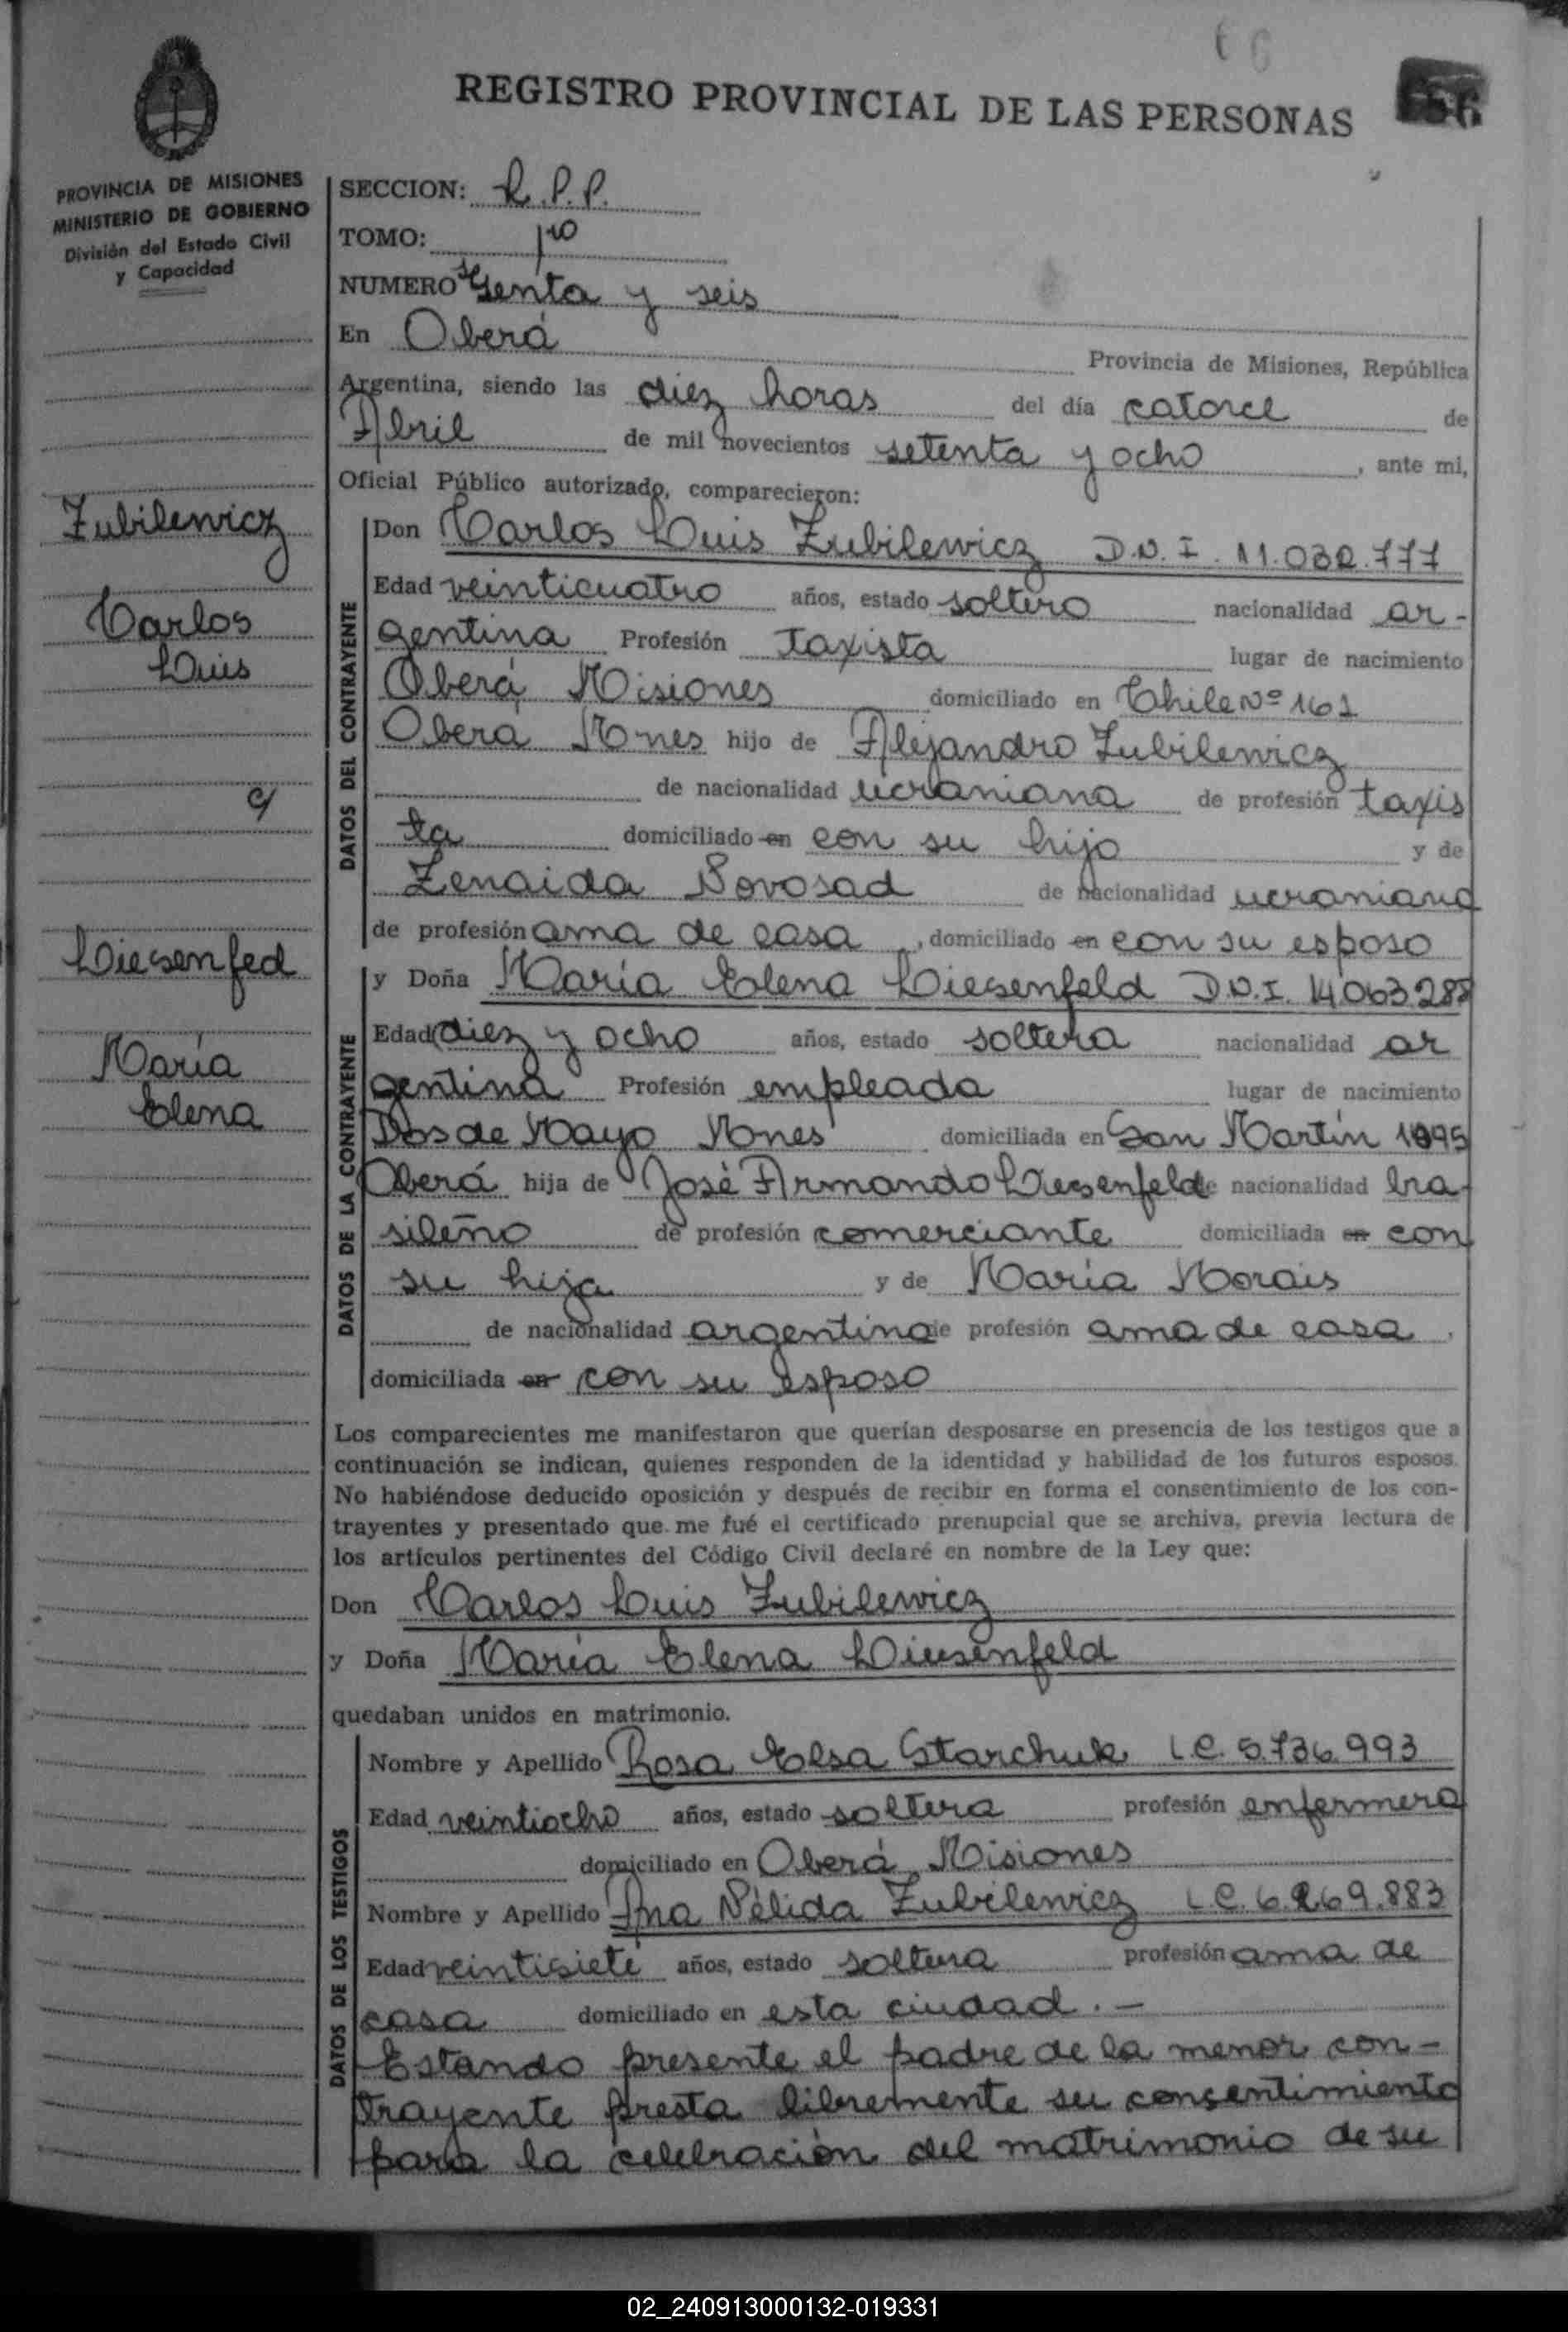 REGISTRO PROVINCIAL DE LAS PERSONAS
56
PROVINCIA DE MISIONES
MINISTERIO DE GOBIERNO
División del Estado Civil
y Capacidad
SECCION: R.P.P.
TOMO: 1ro
NUMERO Senta y seis
En Oberá
Provincia de Misiones, República
Argentina, siendo las diez horas del día catorce de
Abril de mil novecientos setenta y ocho, ante mi,
Oficial Público autorizado, comparecieron:
Zubilewicz
Carlos
Luis
c/
Liesenfed
María
Elena
DATOS DEL CONTRAYENTE
Don Carlos Luis Zubilewicz D.N.I. 11.032.777
Edad veinticuatro años, estado soltero nacionalidad ar-
gentina Profesión Taxista lugar de nacimiento
Oberá Misiones domiciliado en Chile Nº 161
Obera Mnes hijo de Alejandro Zubilewicz
de nacionalidad ucraniana de profesión taxis
ta domiciliado en con su hijo y de
Zenaida Novosad de nacionalidad ucraniana
de profesión ama de casa, domiciliado en con su esposo
DATOS DE LA CONTRAYENTE
y Doña María Elena Liesenfeld D.N.I. 14.063.288
Edad diez y ocho años, estado soltera nacionalidad ar
gentina Profesión empleada lugar de nacimiento
Dos de Mayo Mnes domiciliada en San Martín 1095
Oberá hija de José Armando Liesenfeld de nacionalidad bra-
sileño de profesión comerciante domiciliada en con
su hija y de María Morais
de nacionalidad argentina de profesión ama de casa,
domiciliada en con su esposo
Los comparecientes me manifestaron que querían desposarse en presencia de los testigos que a
continuación se indican, quienes responden de la identidad y habilidad de los futuros esposos.
No habiéndose deducido oposición y después de recibir en forma el consentimiento de los con-
trayentes y presentado que me fué el certificado prenupcial que se archiva, previa lectura de
los artículos pertinentes del Código Civil declaré en nombre de la Ley que:
Don Carlos Luis Zubilewicz
y Doña María Elena Liesenfeld
quedaban unidos en matrimonio.
DATOS DE LOS TESTIGOS
Nombre y Apellido Rosa Elsa Starchuk L.C. 5.736.993
Edad veintiocho años, estado soltera profesión enfermera
domiciliado en Oberá Misiones
Nombre y Apellido Ana Nélida Zubilewicz L.C. 6.269.883
Edad veintisiete años, estado soltera profesión ama de
casa domiciliado en esta ciudad.-
Estando presente el padre de la menor con-
trayente presta libremente su consentimiento
para la celebración del matrimonio de su
02_240913000132-019331